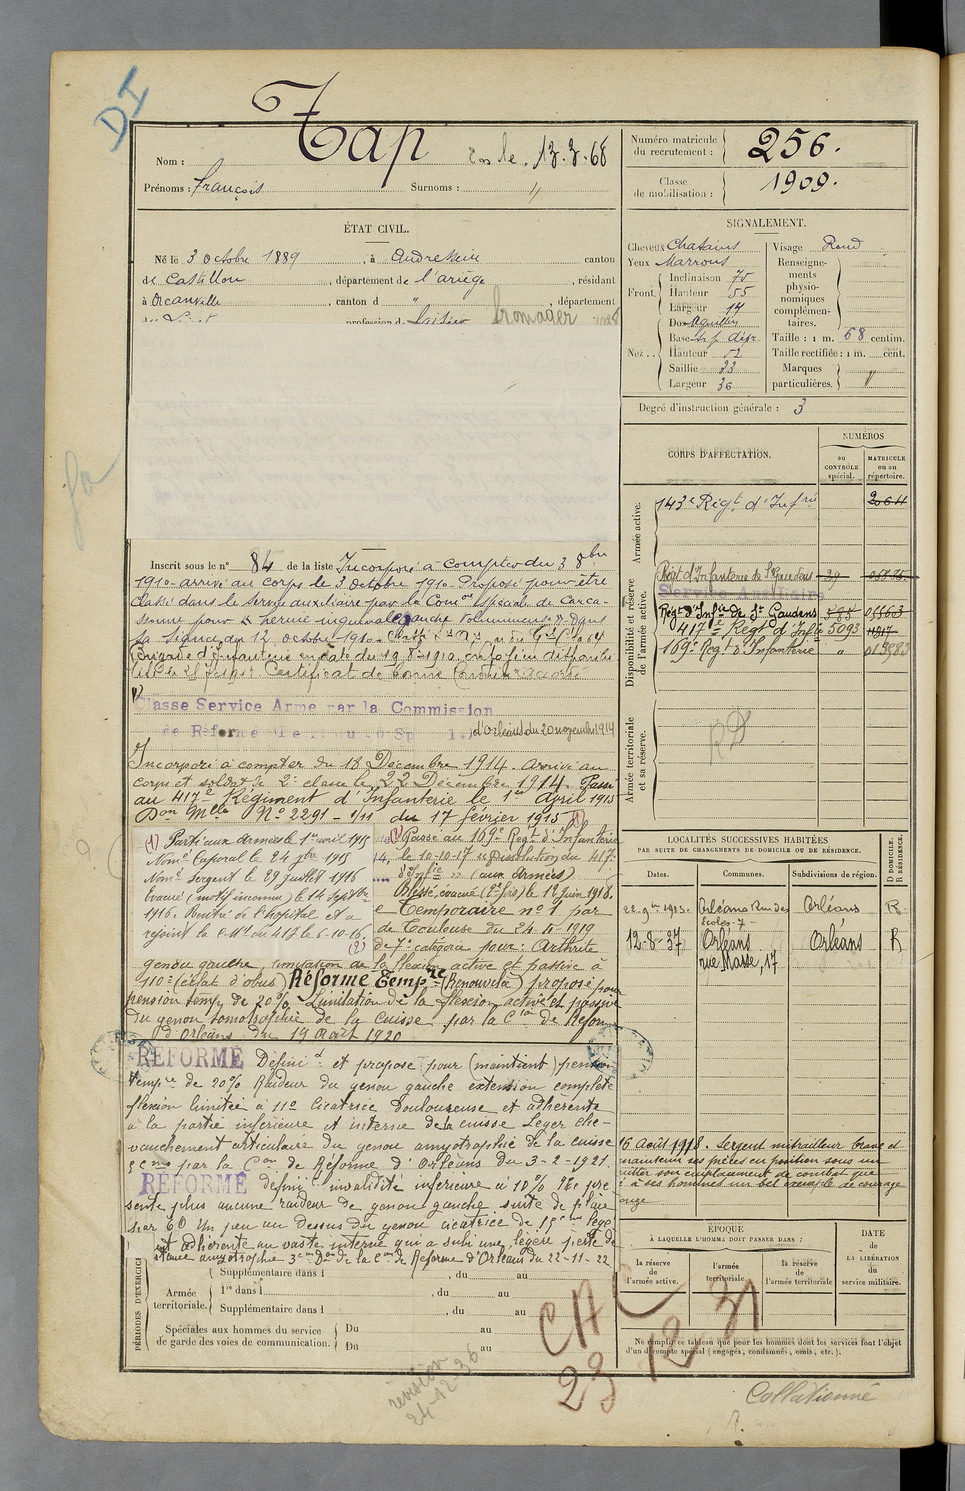 DI
Tap
né le 13.3.68
Nom :
Prénoms : François Surnoms : "
Numéro matricule du recrutement : 256.
Classe de mobilisation : 1909.
ÉTAT CIVIL.
Né le 3 octobre 1889, à Andressein canton
de Castillon, département de l'ariège, résidant
à Orcanville, canton d ", département
profession de laitier fromager
SIGNALEMENT.
Cheveux Chatains
Yeux Marrons
Front. Inclinaison 75
Hauteur 55
Largeur 14
Nez . . Dos Aquilin
Base
Hauteur 52
Saillie 33
Largeur 36
Visage Rond
Renseignements physionomiques complémentaires.
Taille : 1 m. 68 centim.
Taille rectifiée : 1 m. cent.
Marques particulières.
Degré d'instruction générale : 3
CORPS D'AFFECTATION.
NUMÉROS
au CONTRÔLE spécial.
MATRICULE ou au répertoire.
Armée active.
143e Régt d'Infrie 2064
Disponibilité et réserve de l'armée active.
Régt d'Infanterie de St Gaudens 29
Service Auxiliaire
Régt d'Infie de St Gaudens 585 05563
417e Régt d'Infie 5093
109e Régt d'Infanterie "
Armée territoriale et sa réserve.
RD
Inscrit sous le n° 84 de la liste Incorporé à compter du 3 8bre
1910 arrivé au corps le 3 Octobre 1910 Proposé pour être
classé dans le service auxiliaire par la Comon Spéciale de Carca-
ssonne pour hernie inguinale gauche volumineuse dans
sa séance du 12 octobre 1910.
Certificat de bonne conduite accordé
Classé Service Armé par la Commission
de Réforme
d'Orléans du 20 novembre 1914
Incorporé à compter du 18 Décembre 1914. Arrivé au
corps et soldat de 2e classe le 22 Décembre 1914. Passé
au 417e Régiment d'Infanterie le 1er Avril 1915
Don Mlle No 2291 - 1/11 du 17 février 1915 (1)
(1) Parti aux armées le 1er avril 1915
Nomé Caporal le 24
Nomé Sergent le 29 juillet 1916
Evacué (motif inconnu) le 14 Septbre
1916. Rentré de l'hopital et a
rejoint la C.M. du 417 le 6-10-16
(2)
(2) Passé au 109e Régt d'Infanterie
le 10-10-17 Dissolution du 417e
d'Infie (aux armées)
Blessé, évacué (2e fois) le 1er Juin 1918.
e Temporaire no 1 par
de Toulouse du 24 1919
de 7e catégorie pour : Arthrite
genou gauche limitation de la flexion active et passive à
110° (éclat d'obus) Réforme Tempre (Renouvelée) proposé pour
pension temp. de 20% Limitation de la flexion active et passive
du genou amyotrophie de la cuisse par la Cion de Réfor
d'Orléans du 19 Août 1920
RÉFORMÉ Définit et proposé pour (maintient) pension
tempre de 20% Raideur du genou gauche extension complète
flexion limitée à 110 Cicatrice douloureuse et adhérente
à la partie inférieure et interne de la cuisse Léger che-
vauchement articulaire du genou amyotrophie de la cuisse
par la Con de Réforme d'Orléans du 3-2-1921.
RÉFORMÉ définit invalidité inférieure à 10% Ne pré
sente plus aucune raideur de genou gauche suite de plaie
Un peu au dessus du genou cicatrice de
adhérente au vaste interne qui a subi une légère perte de
amyotrophie 3 cm Don de la Con de Réforme d'Orléans du 22-11-22
LOCALITÉS SUCCESSIVES HABITÉES
PAR SUITE DE CHANGEMENTS DE DOMICILE OU DE RÉSIDENCE.
Dates. Communes. Subdivisions de région. D DOMICILE. R RÉSIDENCE.
Orléans Rue des Ecoles 7 Orléans R
12-8-37 Orléans rue Masse, 17 Orléans R
16 Août 1918. Sergent mitrailleur brave et
maintenu ses pièces en position sous un
son emplacement de combat que
à ses hommes un bel exemple de courage
PÉRIODES D'EXERCICE
Armée territoriale.
Supplémentaire dans l , du au
1re dans l , du au
Supplémentaire dans l , du au
Spéciales aux hommes du service de garde des voies de communication.
Du au
Du au
ÉPOQUE
À LAQUELLE L'HOMME DOIT PASSER DANS :
la réserve de l'armée active.
l'armée territoriale.
la réserve de l'armée territoriale
DATE de LA LIBÉRATION du service militaire.
Ne remplir ce tableau que pour les hommes dont les services font l'objet
d'un décompte spécial (engagés, condamnés, omis, etc.).
CAC
23 12 31
révision
24-12-36
Collationné